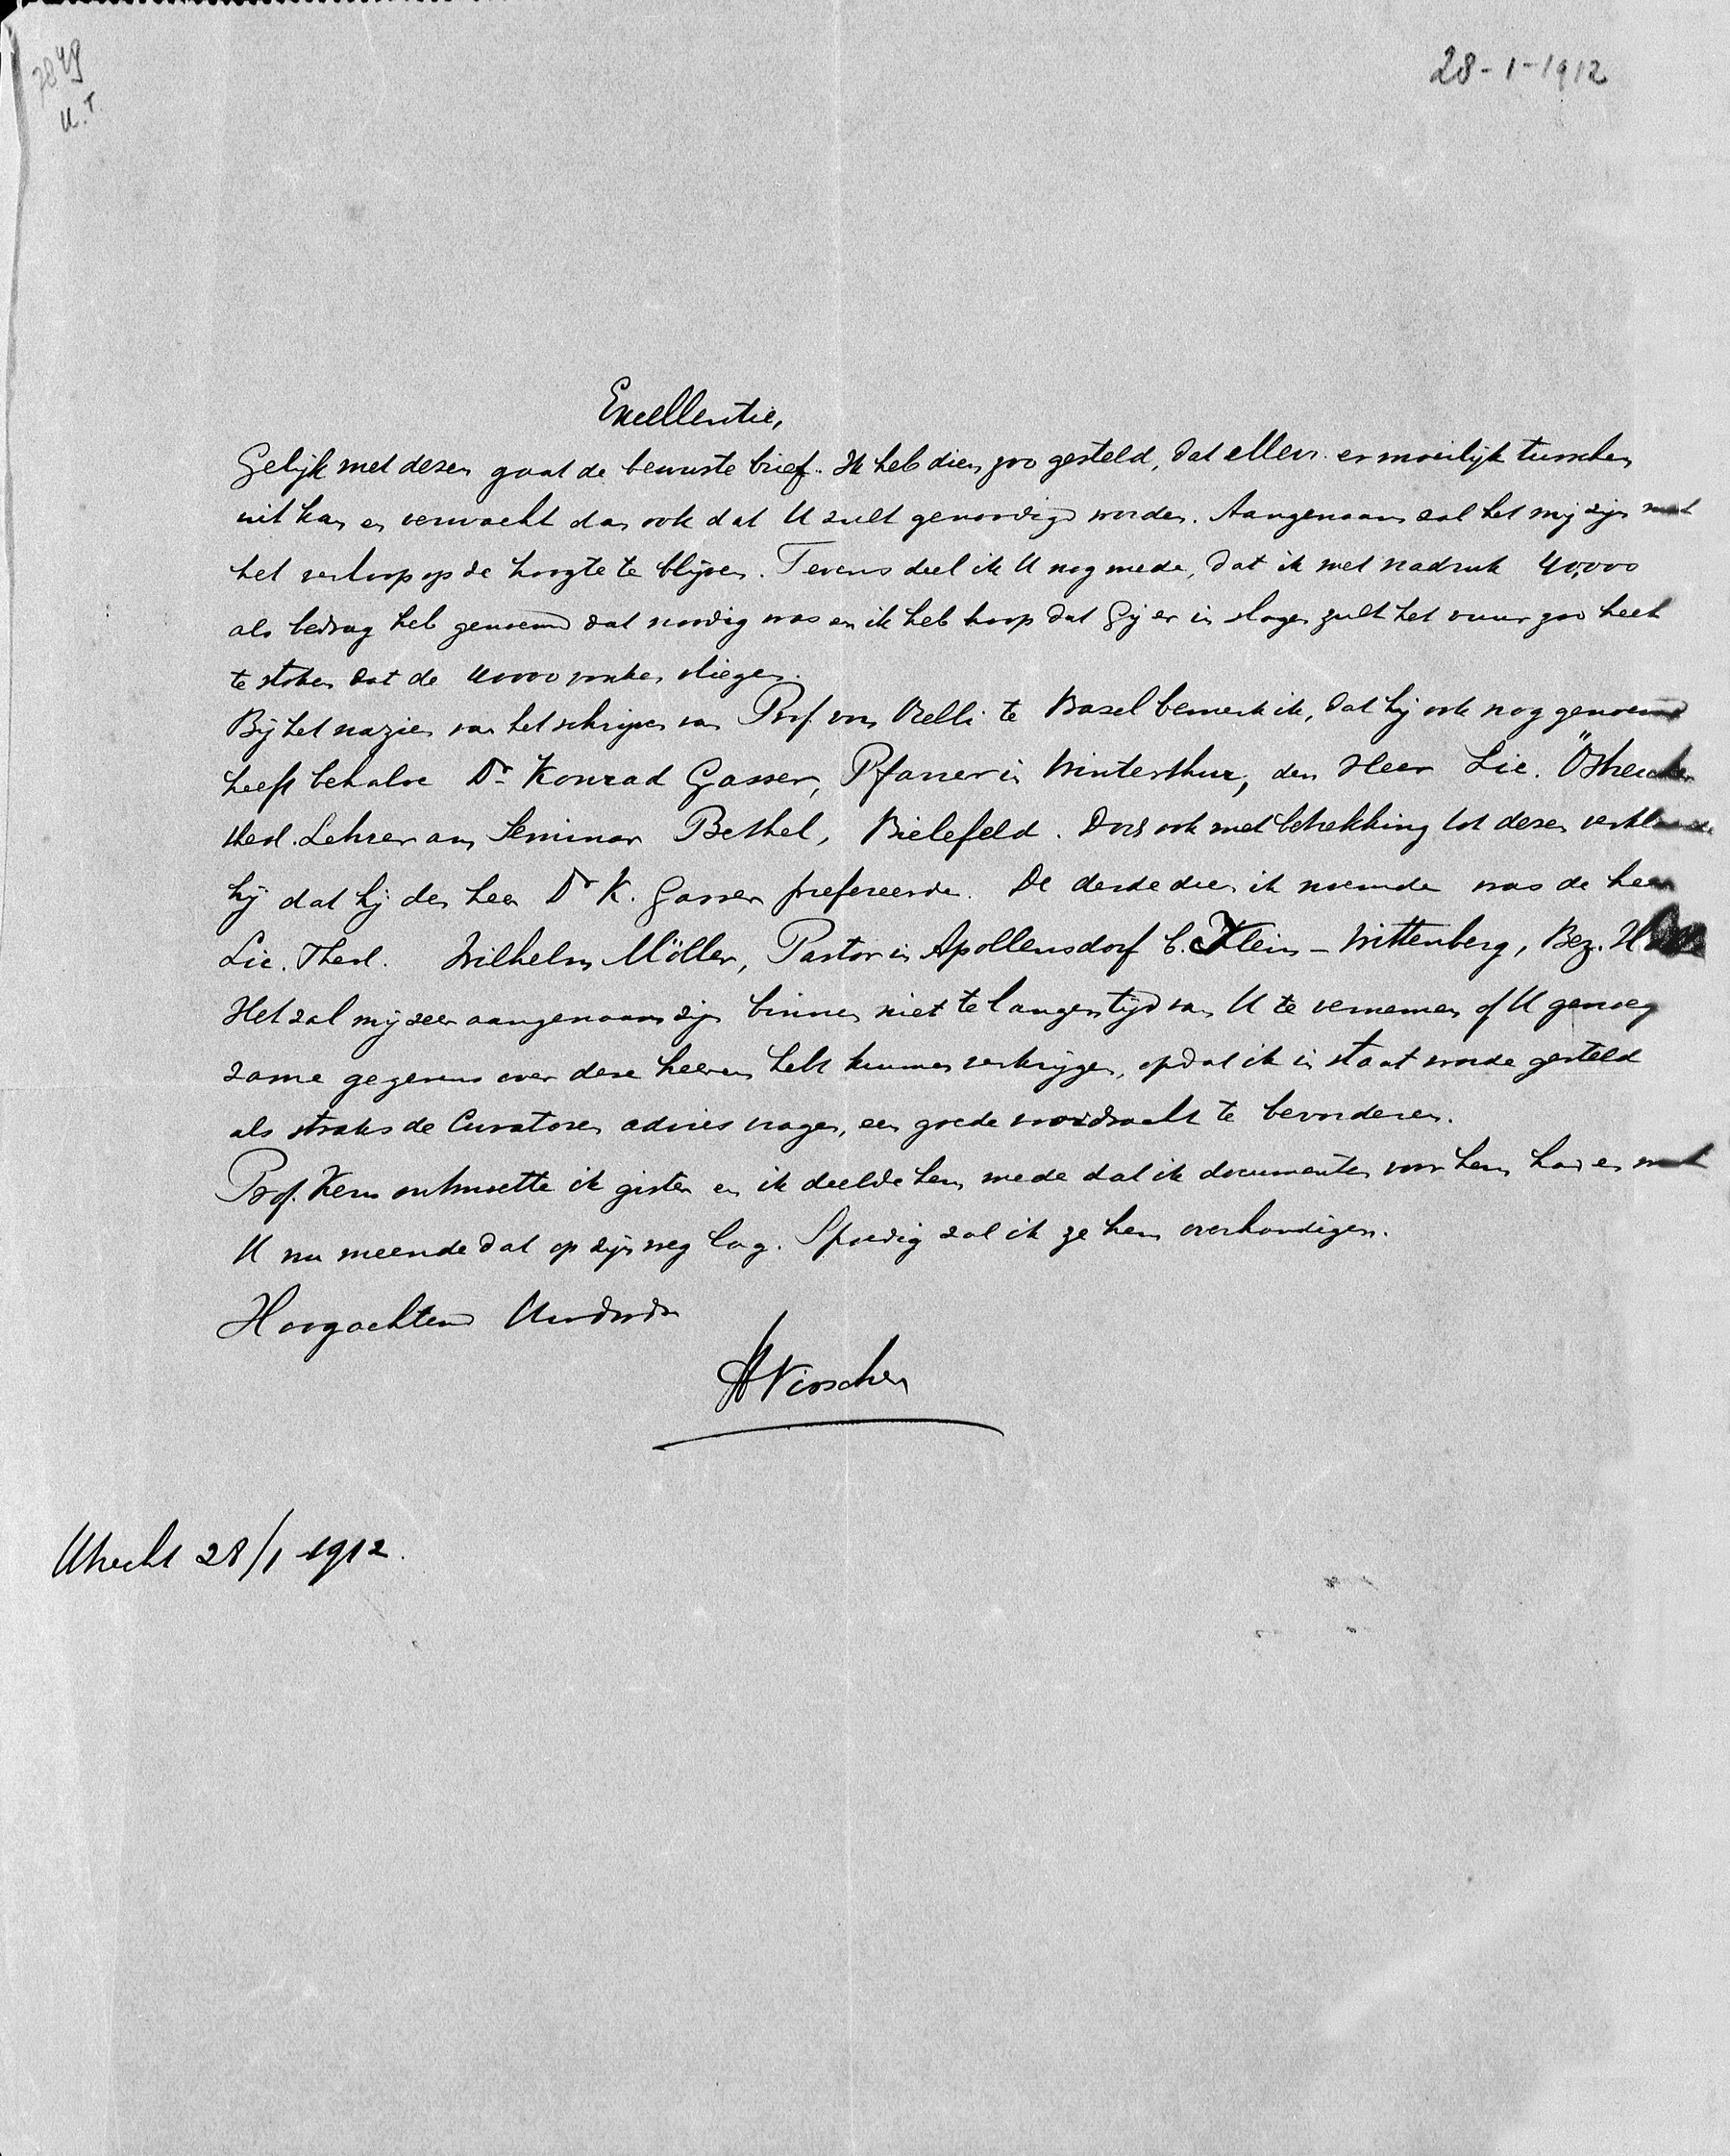 7849
U.T.
28-1-1912
Excellentie,
Gelijk met dezen gaat de bewuste brief. Ik heb dien zoo gesteld, dat ellen er moeilijk tusschen
uit kan en verwacht dan ook dat U zult genoodigd worden. Aangenaam zal het mij zijn met
het verloop op de hoogte te blijven. Tevens deel ik U nog mede, dat ik met nadruk 40,000
als bedrag heb genoemd dat noodig was en ik heb hoop dat Gij er in slagen zult het vuur zoo heet
te stoken dat de 40000 vonken vliegen.
Bij het nazien van het schrijven van Prof. von Orelli te Basel bemerk ik, dat hij ook nog genoemd
heeft behalve Dr. Konrad Gasser, Pfarrer in Winterthur, den Heer Lic. Östreicher
theol. Lehrer am Seminar Bethel, Bielefeld. Doch ook met betrekking tot dezen verklaarde
hij dat hij den heer Dr K. Gasser prefereerde. De derde dien ik noemde was de heer
Lic. Theol. Wilhelm Möller, Pastor in Apollensdorf b. Klein-Wittenberg, Bez.
Het zal mij zeer aangenaam zijn binnen niet te langen tijd van U te vernemen of U genoeg
zame gegevens over deze heeren hebt kunnen verkrijgen, opdat ik in staat worde gesteld
als straks de Curatoren advies vragen, een goede voordracht te bevorderen.
Prof. Kern ontmoette ik gister en ik deelde hem mede dat ik documenten voor hem had en wat
U nu meende dat op zijn weg lag. Spoedig zal ik ze hem overhandigen.
Hoogachtend Uwdwdr
HVisscher
Utrecht 28/1 1912.